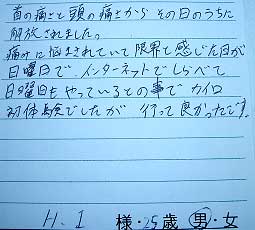 首の痛さと頭の痛さから その日のうちに
解放されました。
痛みに悩まされていて限界と感じた日が
日曜日で、インターネットでしらべて
日曜日もやっているとの事で カイロ
初体験でしたが 行って良かったです。
H.I 様・25歳 男・女